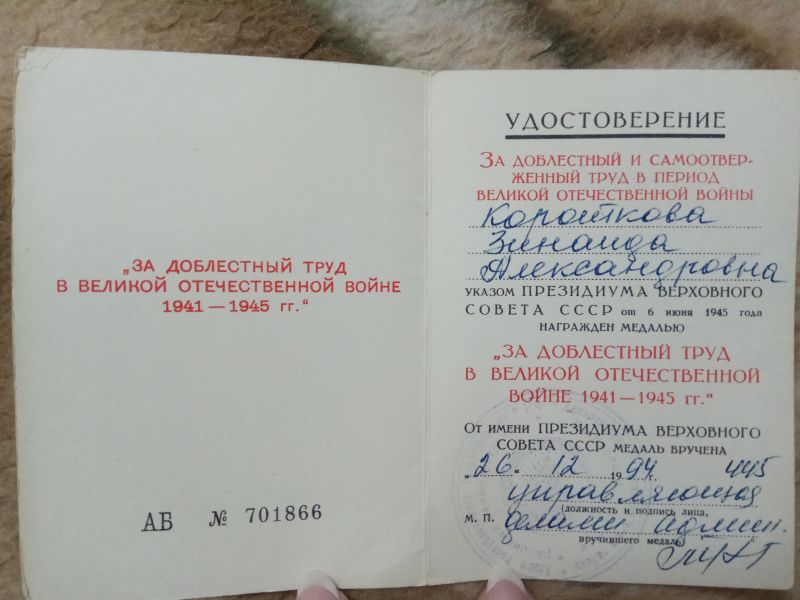 „ЗА ДОБЛЕСТНЫЙ ТРУД
В ВЕЛИКОЙ ОТЕЧЕСТВЕННОЙ ВОЙНЕ
1941 — 1945 гг.“
АБ № 701866
УДОСТОВЕРЕНИЕ
ЗА ДОБЛЕСТНЫЙ И САМООТВЕР-
ЖЕННЫЙ ТРУД В ПЕРИОД
ВЕЛИКОЙ ОТЕЧЕСТВЕННОЙ ВОЙНЫ
Короткова
Зинаида
Александровна
УКАЗОМ ПРЕЗИДИУМА ВЕРХОВНОГО
СОВЕТА СССР от 6 июня 1945 года
НАГРАЖДЕН МЕДАЛЬЮ
„ЗА ДОБЛЕСТНЫЙ ТРУД
В ВЕЛИКОЙ ОТЕЧЕСТВЕННОЙ
ВОЙНЕ 1941 — 1945 гг.“
От имени ПРЕЗИДИУМА ВЕРХОВНОГО
СОВЕТА СССР МЕДАЛЬ ВРУЧЕНА
„26“ 12 1994 г. 445
управляющая
(должность и подпись лица,
М. П. делами админ.
вручившего медаль)